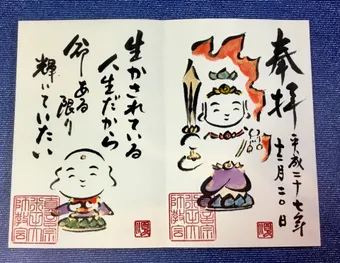 奉拝
平成二十七年
十二月二〇日
生かされている
人生だから
命ある限り
輝いていたい